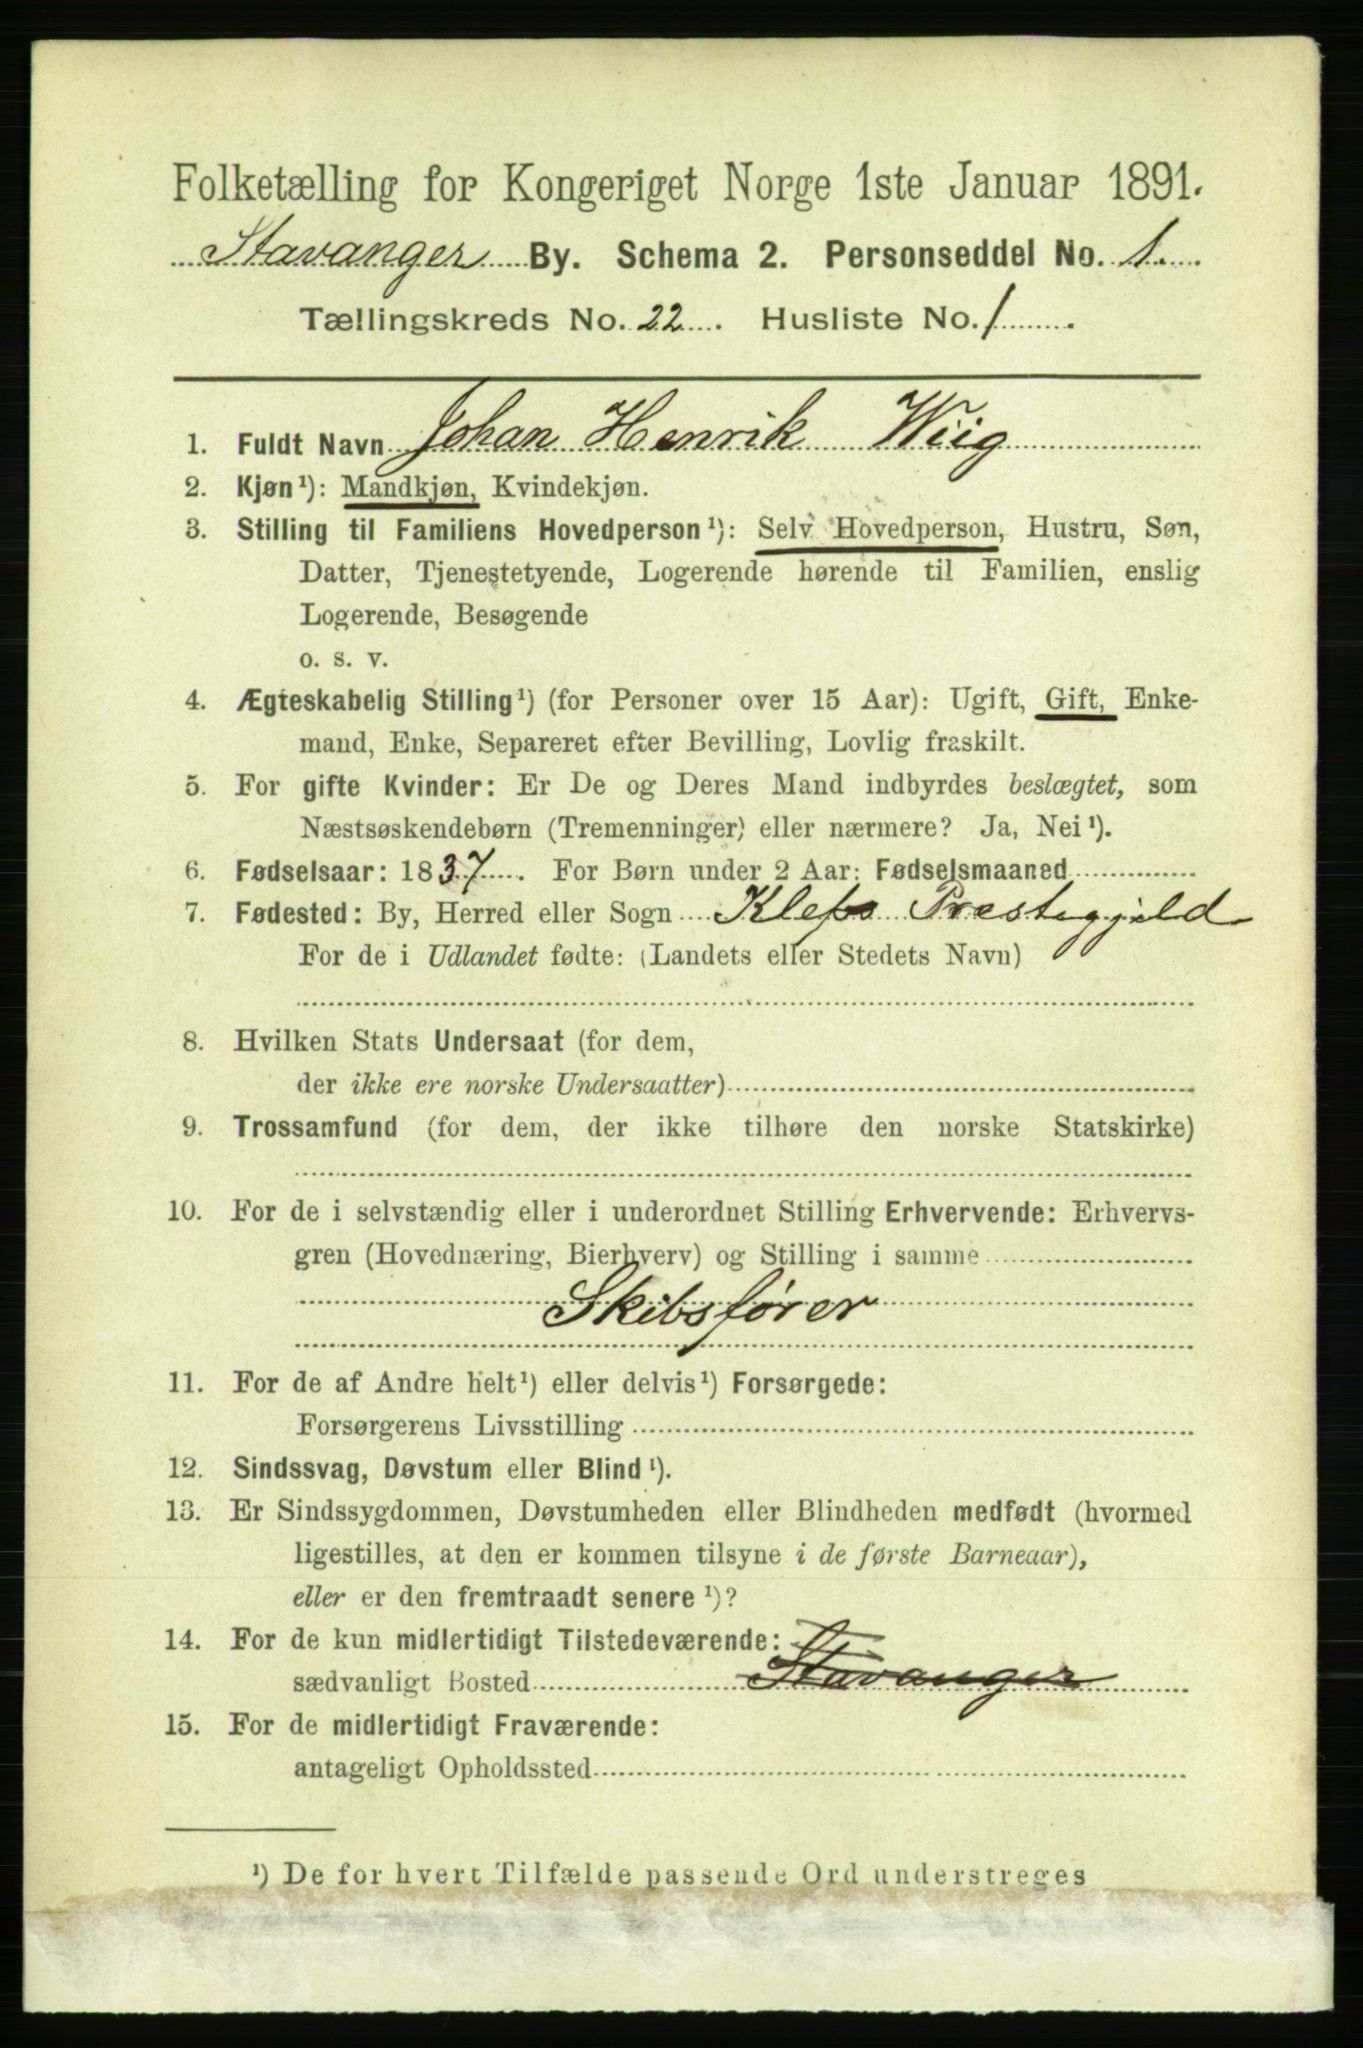 Folketælling for Kongeriget Norge 1ste Januar 1891.
Stavanger By. Schema 2. Personseddel No. 1.
Tællingskreds No. 22. Husliste No. 1.
1. Fuldt Navn Johan Henrik Wiig
2. Kjøn¹): Mandkjøn, Kvindekjøn.
3. Stilling til Familiens Hovedperson¹): Selv Hovedperson, Hustru, Søn,
Datter, Tjenestetyende, Logerende hørende til Familien, enslig
Logerende, Besøgende
o. s. v.
4. Ægteskabelig Stilling¹) (for Personer over 15 Aar): Ugift, Gift, Enke-
mand, Enke, Separeret efter Bevilling, Lovlig fraskilt.
5. For gifte Kvinder: Er De og Deres Mand indbyrdes beslægtet, som
Næstsøskendebørn (Tremenninger) eller nærmere? Ja, Nei¹).
6. Fødselsaar: 1837. For Børn under 2 Aar: Fødselsmaaned
7. Fødested: By, Herred eller Sogn Kleps Præstegjeld
For de i Udlandet fødte: (Landets eller Stedets Navn)
8. Hvilken Stats Undersaat (for dem,
der ikke ere norske Undersaatter)
9. Trossamfund (for dem, der ikke tilhøre den norske Statskirke)
10. For de i selvstændig eller i underordnet Stilling Erhvervende: Erhvervs-
gren (Hovednæring, Bierhverv) og Stilling i samme
Skibsfører
11. For de af Andre helt¹) eller delvis¹) Forsørgede:
Forsørgerens Livsstilling
12. Sindssvag, Døvstum eller Blind¹).
13. Er Sindssygdommen, Døvstumheden eller Blindheden medfødt (hvormed
ligestilles, at den er kommen tilsyne i de første Barneaar),
eller er den fremtraadt senere¹)?
14. For de kun midlertidigt Tilstedeværende:
sædvanligt Bosted Stavanger
15. For de midlertidigt Fraværende:
antageligt Opholdssted
¹) De for hvert Tilfælde passende Ord understreges